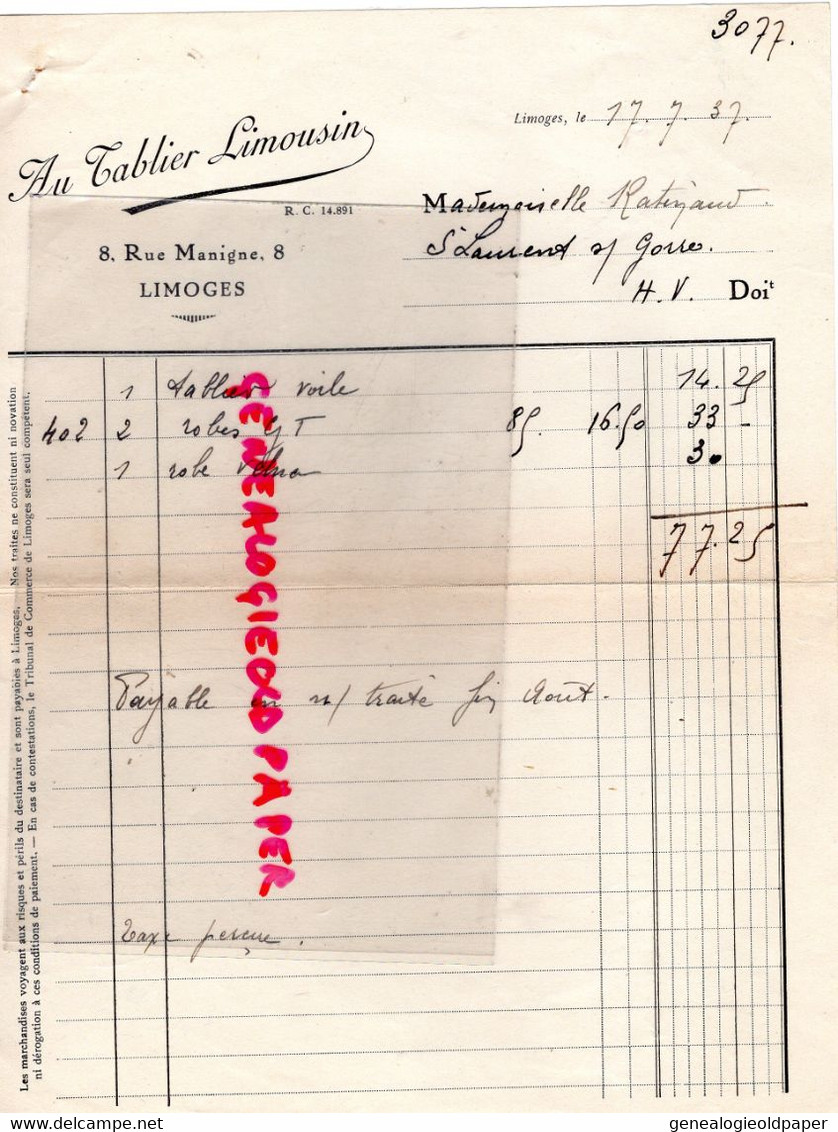 3077.
Limoges, le 17. 7. 37.
Au Tablier Limousin
R. C. 14.891
8, Rue Manigne, 8
LIMOGES
Mademoiselle
St Laurent s/ Gorre.
H. V. Doit
1 tablier voile 14. 25
402 2 robes 85. 16.50 33 -
1 robe 30
77.25
Payable en n/ traite fin Août.
Taxe perçue.
Les marchandises voyagent aux risques et périls du destinataire et sont payables à Limoges. — Nos traites ne constituent ni novation
ni dérogation à ces conditions de paiement. — En cas de contestations, le Tribunal de Commerce de Limoges sera seul compétent.
GENEALOGIEOLDPAPER
www.delcampe.net
genealogieoldpaper